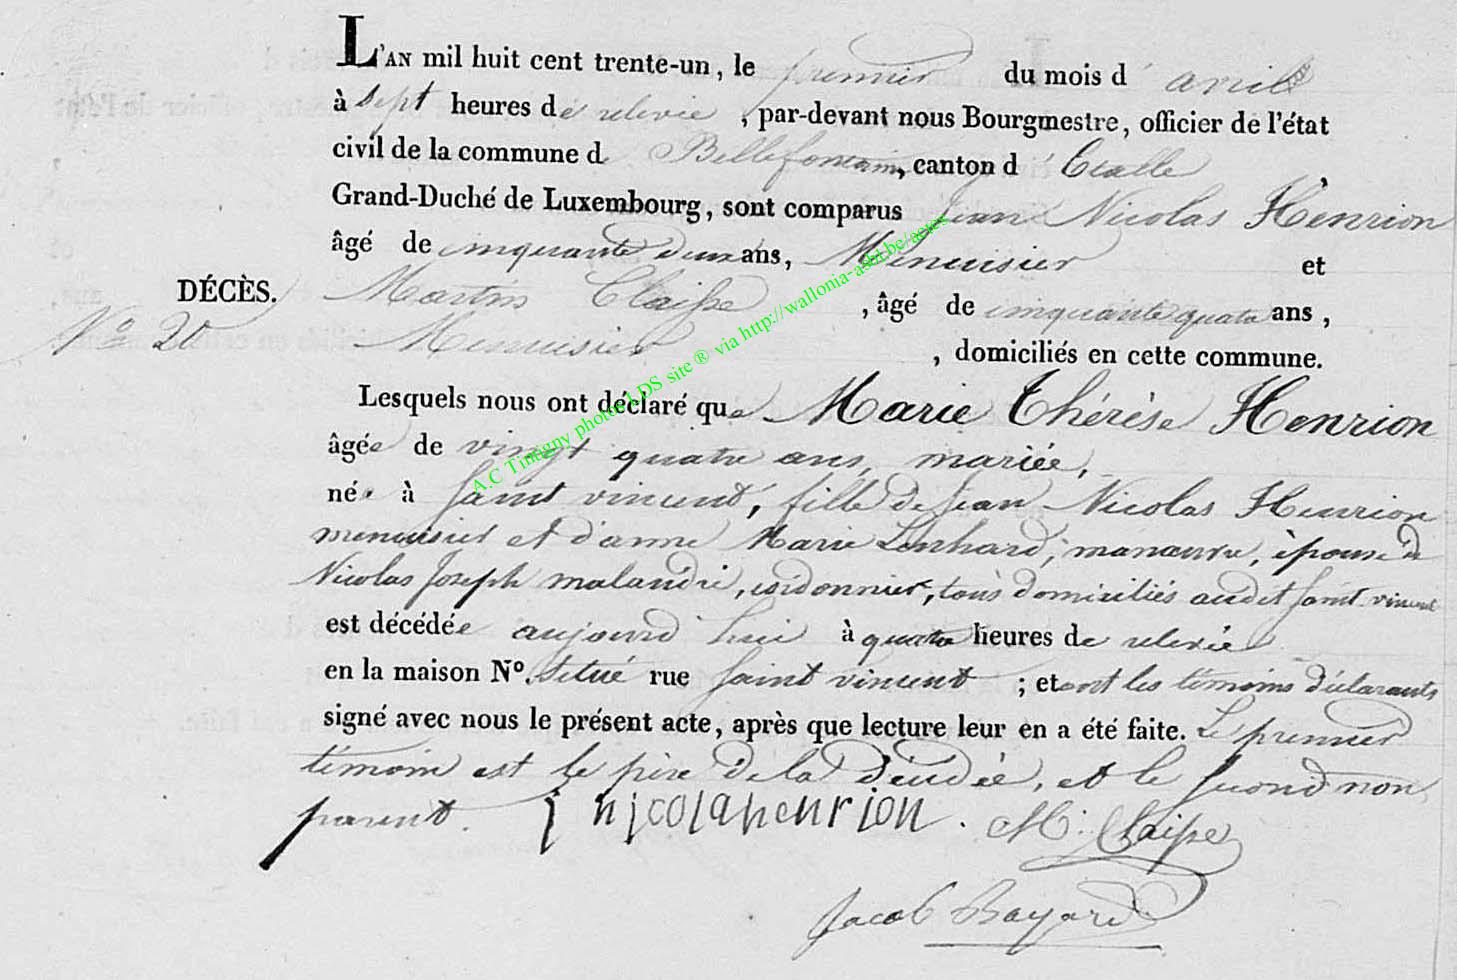 L'AN mil huit cent trente-un, le premier du mois d'avril
à sept heures de relevée, par-devant nous Bourgmestre, officier de l'état
civil de la commune de Bellefontaine, canton d' Etalle,
Grand-Duché de Luxembourg, sont comparus Jean Nicolas Henrion
âgé de cinquante deux ans, Menuisier et
DÉCÈS. Martin Claisse, âgé de cinquante quatre ans,
N° 20 Menuisier, domiciliés en cette commune.
Lesquels nous ont déclaré que Marie Thérèse Henrion
âgée de vingt quatre ans, mariée,
née à Saint vincent, fille de Jean Nicolas Henrion
menuisier et d'anne Marie Lenhard, manœuvre, épouse de
Nicolas Joseph malandri, cordonnier, tous domiciliés audit Saint vincent
est décédée aujourd'hui à quatre heures de relevée
en la maison N°. située rue Saint vincent ; et ont les témoins déclarants
signé avec nous le présent acte, après que lecture leur en a été faite. Le premier
témoin est le père de la décédée, et le second non
parent. j nicola henrion. M. Claisse
Jacob Bayard
A.C Tintigny photos LDS site ® via http://wallonia-asbl.be/actes